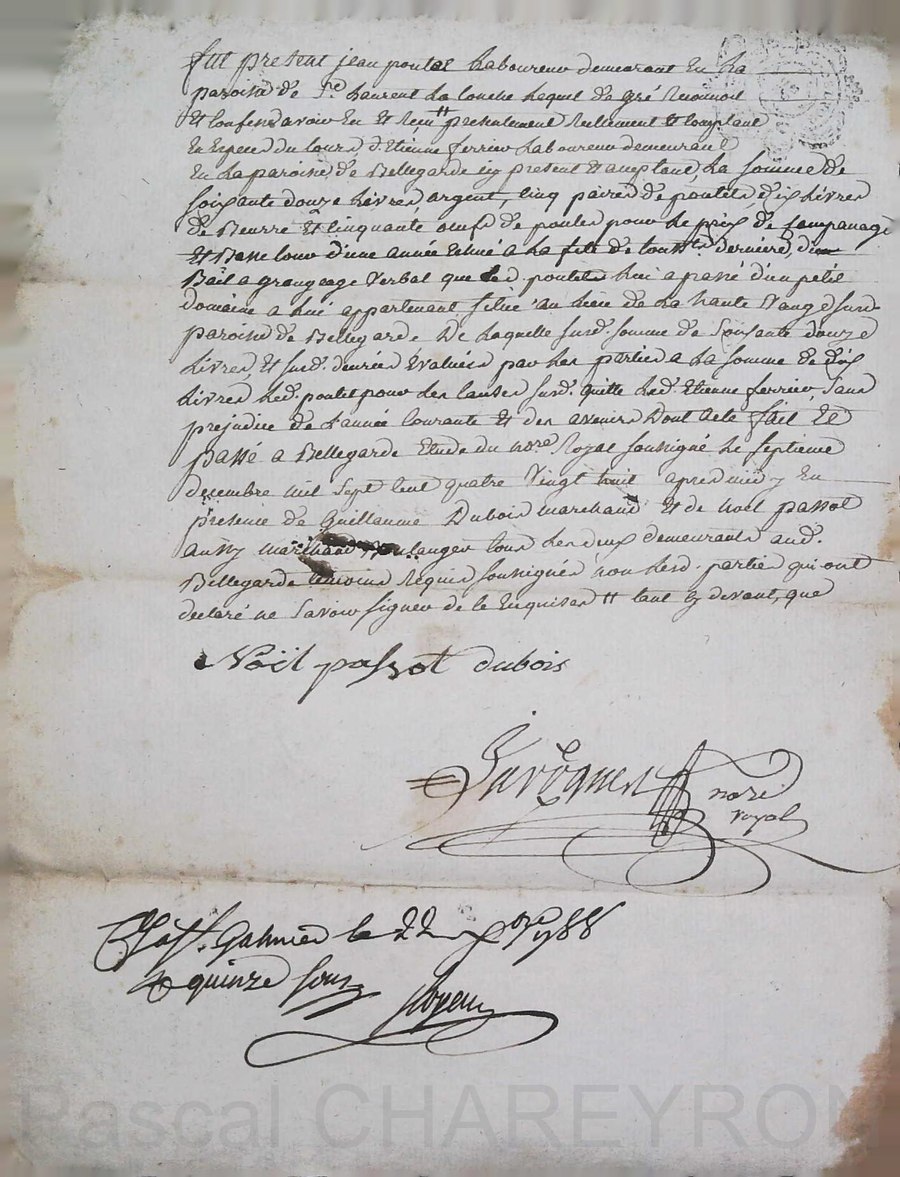 fut present jean poulat Laboureur demeurant En La
paroisse de St. Laurent La Conche Lequel de gré Reconnoit
Et Confesse avoir Eu Et Reçu # presentement Reellement Et Comptant
En Especes du Cours d'Etienne ferrier Laboureur demeurant
En La paroisse de Bellegarde icy present Et acceptant, La somme de
soixante douze Livres argent, cinq paires de poulets dix Livres
de Beurre Et Cinquante œufs de poules pour Le prix de
Et Basse Cour d'une année Echue a La fete de touss.ts derniere, du
Bail a grangeage Verbal que Led. poulat Lui a passé d'un petit
domaine a Lui appartenant situé au Lieu de La haute
paroisse de Bellegarde De Laquelle susd. somme de soixante douze
Livres, Et susd. denrées Evaluées par Les parties a La somme de dix
Livres Led. poulat pour Les Causes susd. quitte Led. Etienne ferrier, sans
prejudice de L'année Courante Et des avenirs Dont Acte fait Et
passé a Bellegarde Etude du nore. Royal soussigné Le septieme
decembre mil sept Cent quatre Vingt huit apres midy En
presence de Guillaume Dubois marchand Et de noel passot
aussy marchand Boulanger tous Les deux demeurants aud.
Bellegarde temoins Requis soussignés non Lesd. parties qui ont
declaré ne savoir signer de Ce Enquises # tant cy devant, que
Noël passot dubois
nore.
royal
St. Galmier le 22 xbre 1788
quinze sous